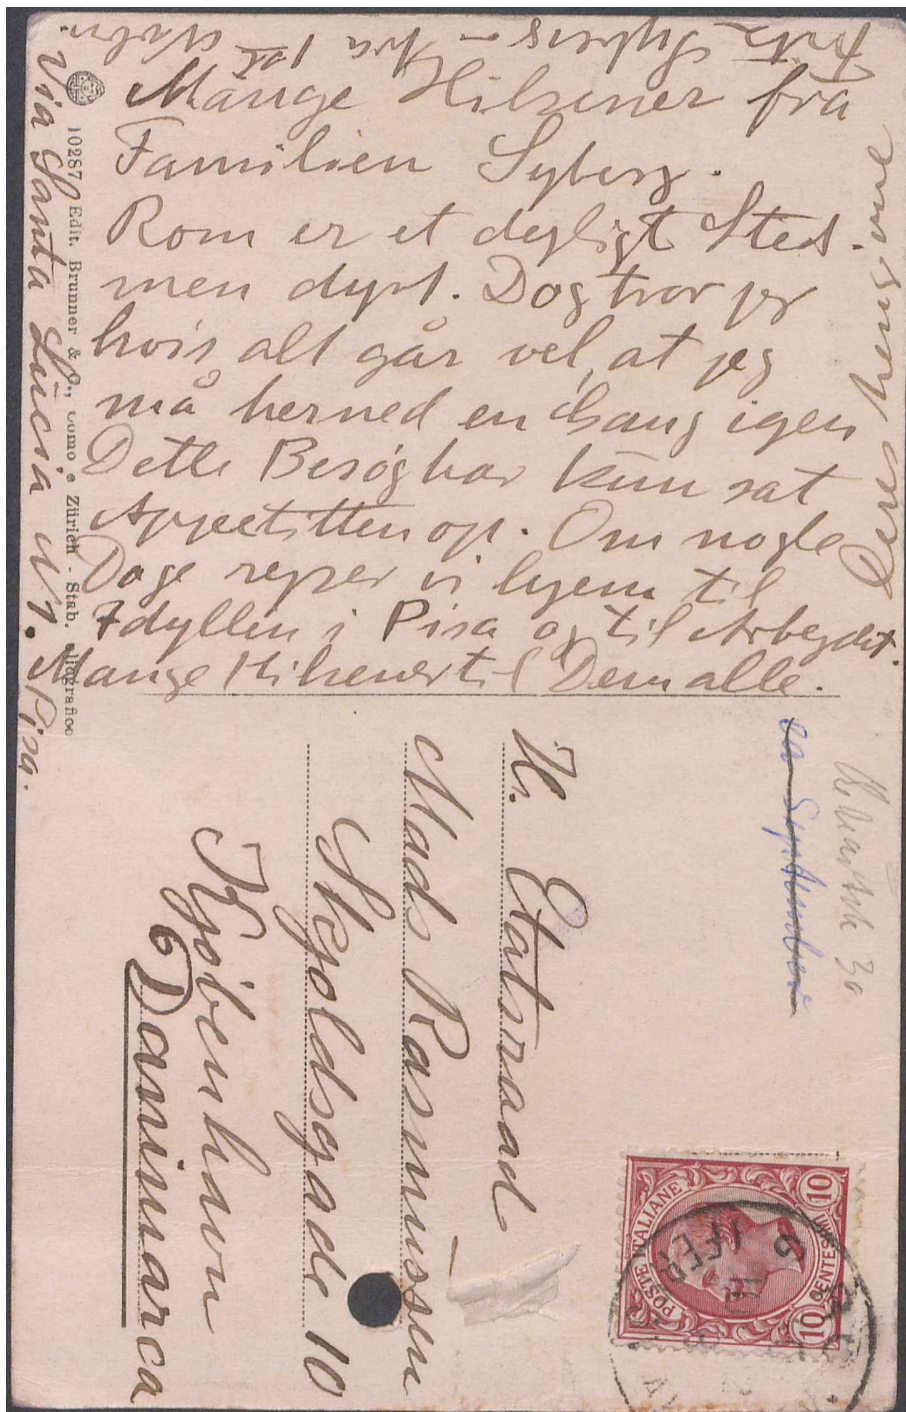 Mange Hilsener fra
Familien Syberg.
Rom er et dejligt Sted.
men dyrt. Dog tror jeg
hvis alt går vel, at jeg
må herned en Gang igen
Dette Besøg har kun sat
Appetitten op. Om nogle
Dage rejser vi hjem til
Idyllen i Pisa og til Arbejdet.
Mange Hilsener til Dem alle.
Deres hengivne
Fritz Syberg – fra 1st
Via Santa Lucia Pisa.
10287 Edit. Brunner & C., Como e Zürich - Stab.
Hr. Etatsraad
Mads Rasmussen
Skjoldsgade 10
Kjøbenhavn
Danimarca
ca September
POSTE ITALIANE
CENTESIMI
10
10